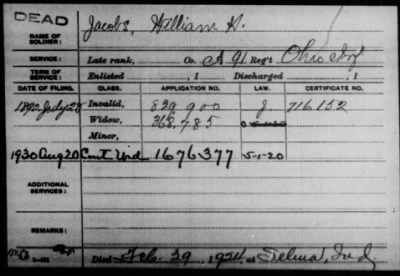 DEAD
Jacobs, William H.
NAME OF SOLDIER:
SERVICE: Late rank, Co. A 91 Reg't Ohio Inf
TERM OF SERVICE: Enlisted , 1 Discharged , 1
DATE OF FILING. CLASS. APPLICATION NO. LAW. CERTIFICATE NO.
1890 July 28 Invalid, 829,900 J. 716,152
Widow, 368,785
Minor,
1930 Aug 20 Cont Wid 1676377 5-1-20
ADDITIONAL SERVICES:
REMARKS:
Died Feb. 29, 1924, at Selma, Ind